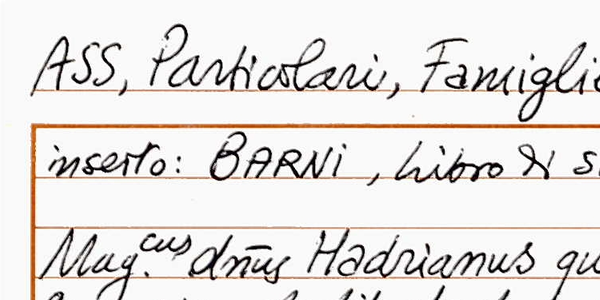 ASS, Particolari, Famiglie
inserto: BARNI, Libro di s
Mag.cus dnūs Hadrianus qu